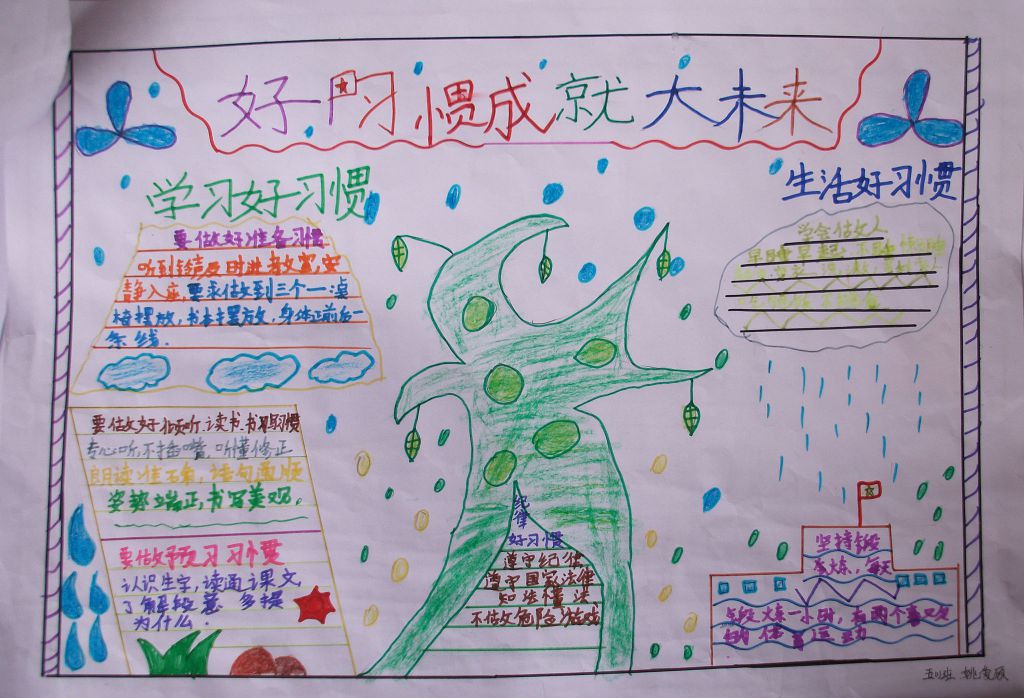 好习惯成就大未来
学习好习惯
要做好准备习惯
听到铃声及时进教室,安
静入座,要求做到三个一:桌
椅摆放,书本摆放,身体正前后一
条线.
要做好倾听.读书.书写习惯
专心听,不插嘴,听懂修正
朗读准确,语句通顺
姿势端正,书写美观.
要做预习习惯
认识生字,读通课文
了解段意 多提
为什么.
纪律
好习惯
遵守纪律
遵守国家法律
知法懂法
不做危险游戏
生活好习惯
学会做人
早睡早起
坚持锻
炼,每天
锻炼一小时,有两个喜欢
的体育运动